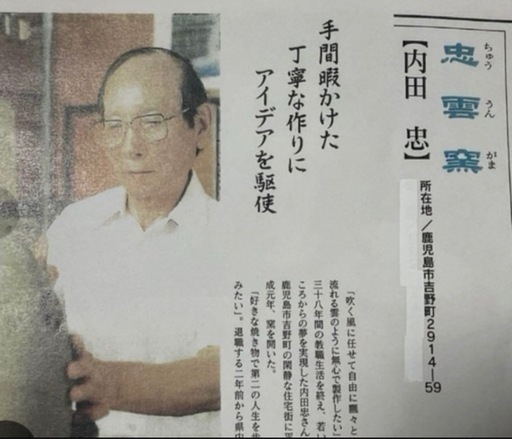 忠雲窯
ちゅううんがま
【内田　忠】
所在地／鹿児島市吉野町2914―59
手間暇かけた
丁寧な作りに
アイデアを駆使
「吹く風に任せて自由に飄々と
流れる雲のように無心で製作したい」
三十八年間の教職生活を終え、若い
ころからの夢を実現した内田忠さん
鹿児島市吉野町の閑静な住宅街に平
成元年、窯を開いた。
「好きな焼き物で第二の人生を歩
みたい」。退職する二年前から県中